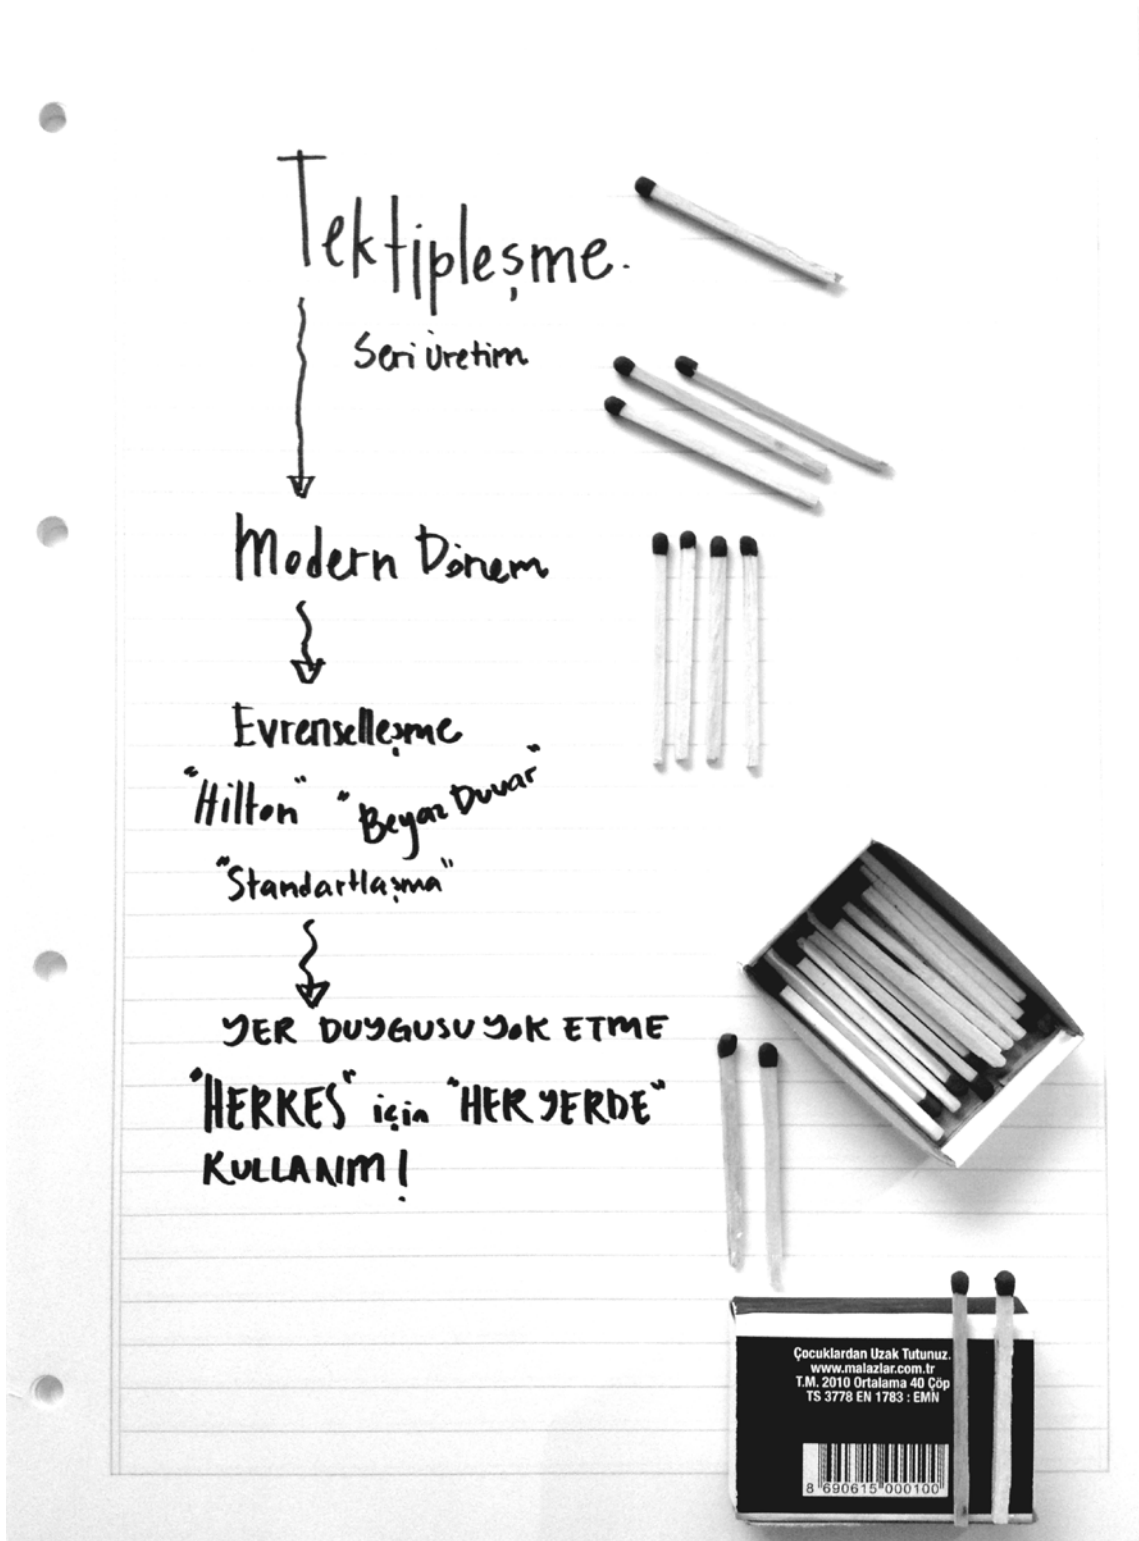 Tektipleşme.
Seri üretim
Modern Dönem
Evrenselleşme
"Hilton" "Beyaz Duvar"
"Standartlaşma"
YER DUYGUSU YOK ETME
"HERKES" için "HER YERDE"
KULLANIM!
Çocuklardan Uzak Tutunuz.
www.malazlar.com.tr
T.M. 2010 Ortalama 40 Çöp
TS 3778 EN 1783 : EMN
8 690615 000100